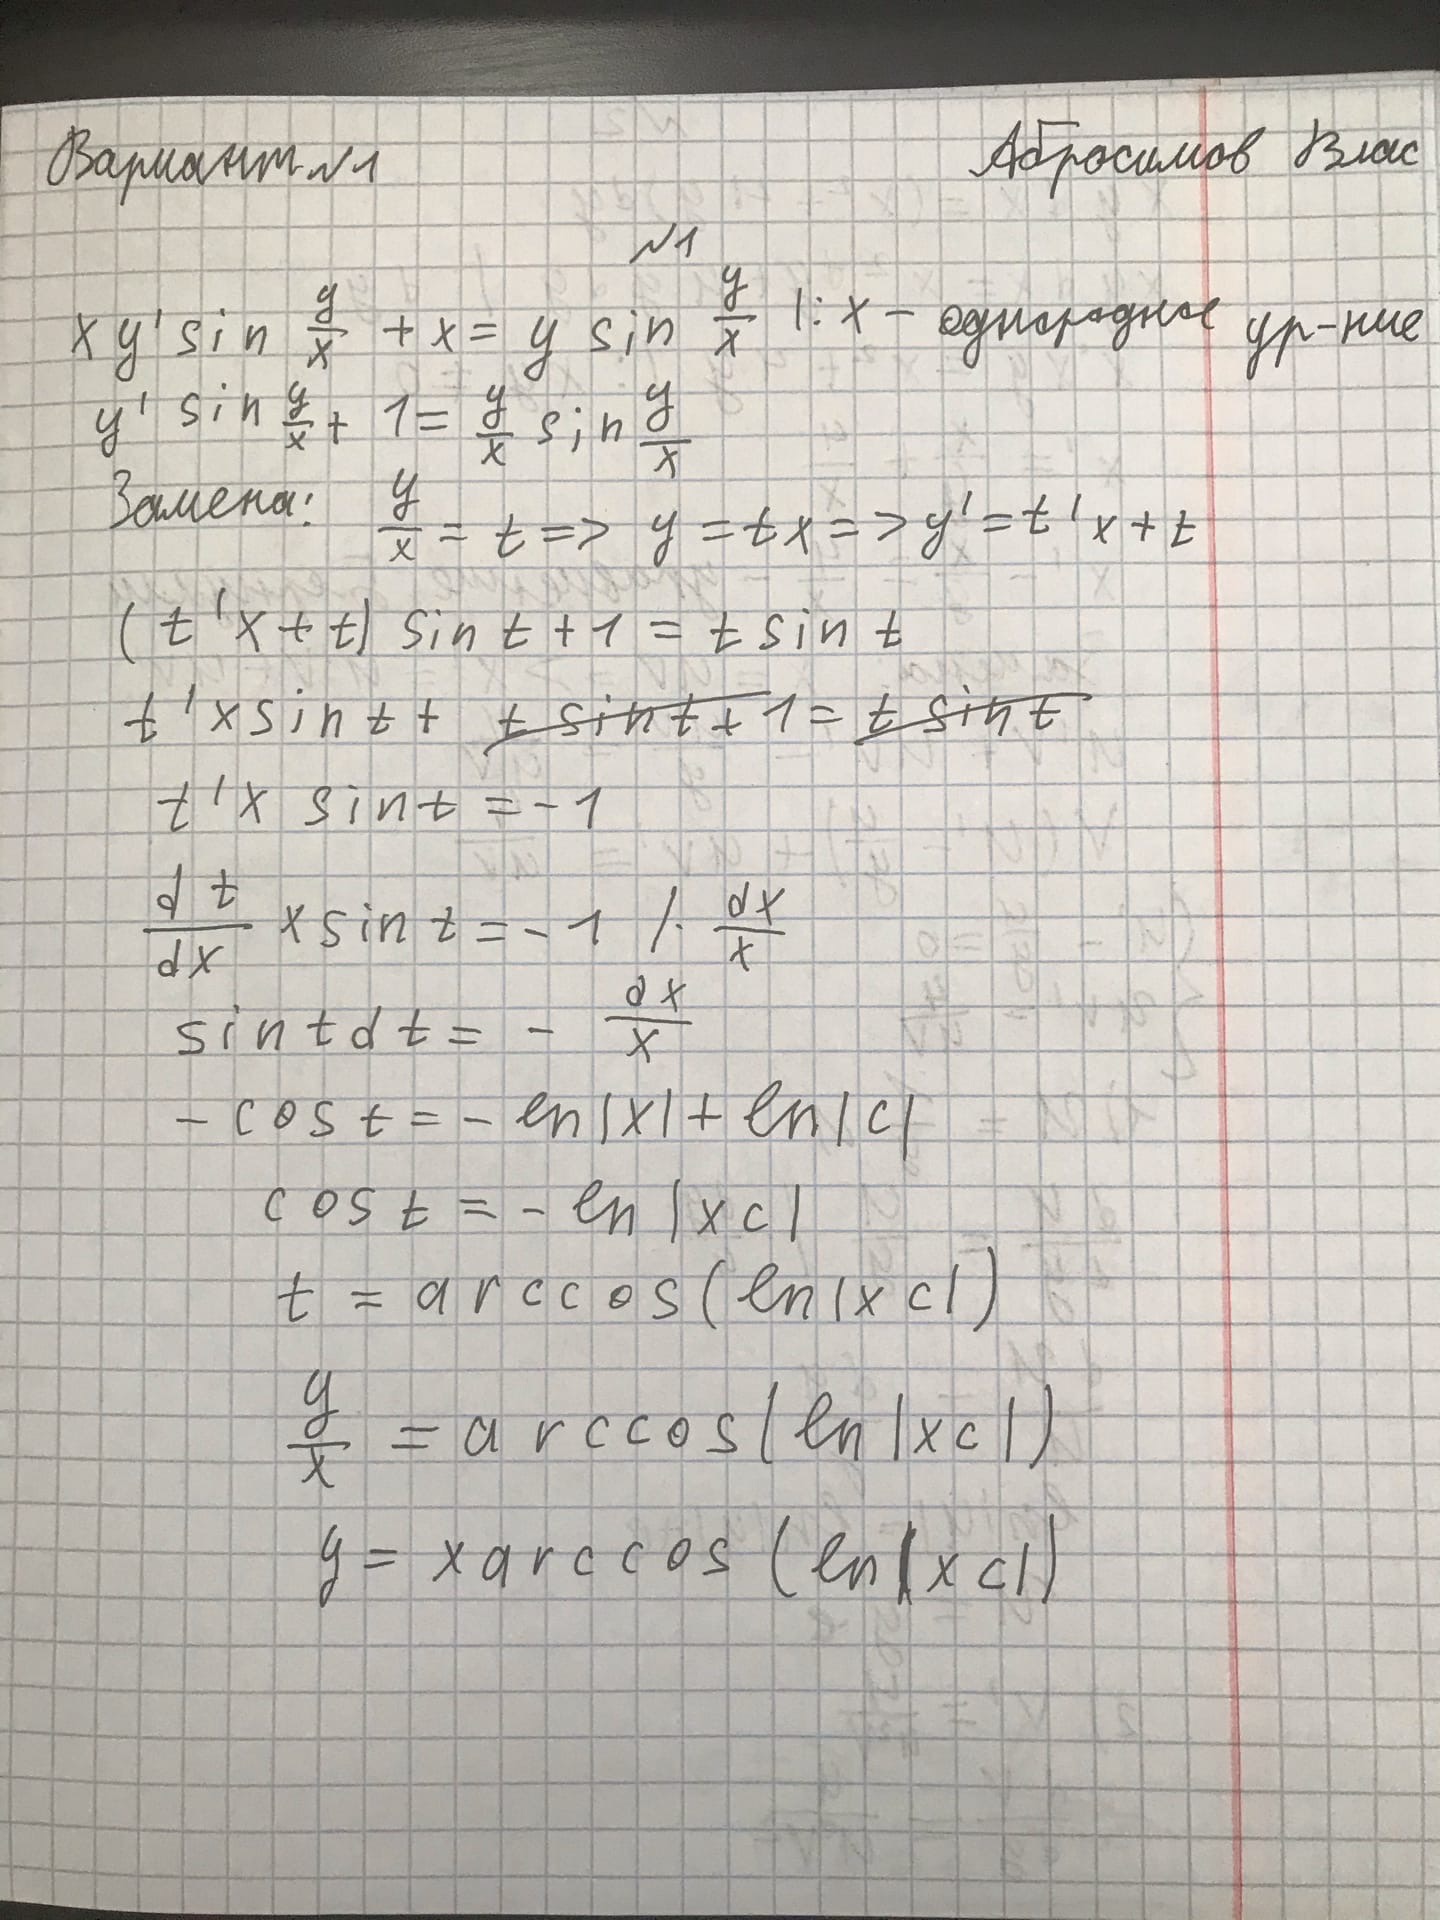 Вариант №1 Абросимов Влас
№1
xy' sin y/x + x = y sin y/x |: x - однородное ур-ние
y' sin y/x + 1 = y/x sin y/x
Замена: y/x = t => y = tx => y' = t'x + t
(t'x + t) sin t + 1 = t sin t
t'x sin t + t sin t + 1 = t sin t
t'x sin t = - 1
dt/dx x sin t = - 1 /· dx/x
sin t dt = - dx/x
- cos t = - ln|x| + ln|c|
cos t = - ln|xc|
t = arccos(ln|xc|)
y/x = arccos(ln|xc|)
y = x arccos(ln|xc|)